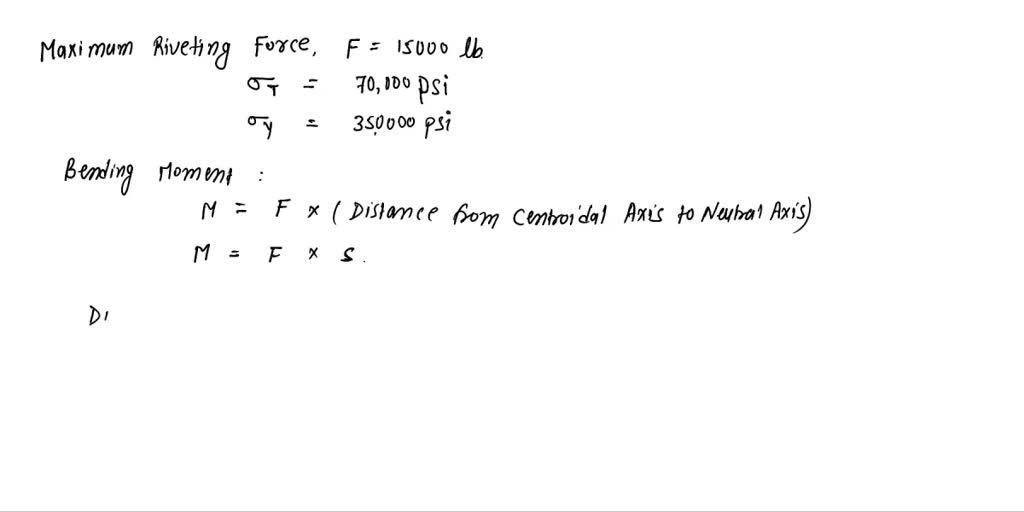 Maximum Riveting Force, F = 15000 lb.
σT = 70,000 psi
σy = 35,0000 psi
Bending Moment :
M = F × (Distance from Centroidal Axis to Neutral Axis)
M = F × s.
Di